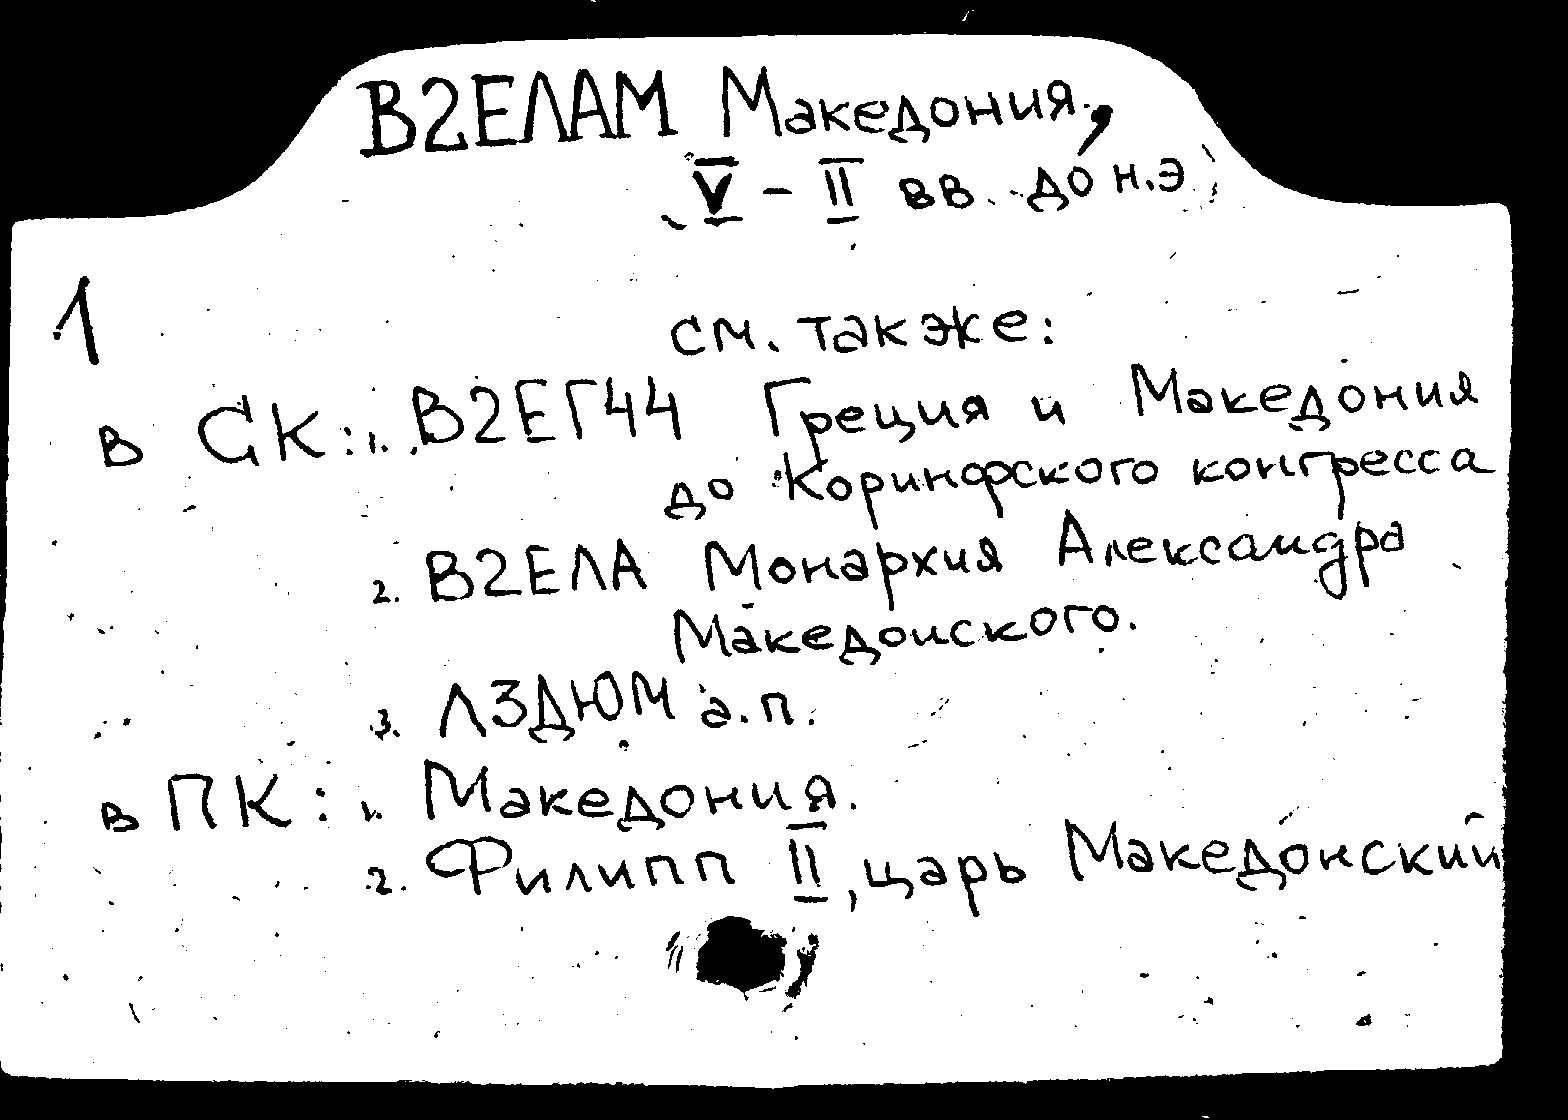 В2ЕЛАМ Македония,
V – II вв. до н.э
1
см. также:
в СК: 1. В2ЕГ44 Греция и Македония
до Коринфского конгресса
2. В2ЕЛА Монархия Александра
Македонского.
3. Л3ДЮМ а.п.
в ПК: 1. Македония.
2. Филипп II, царь Македонский